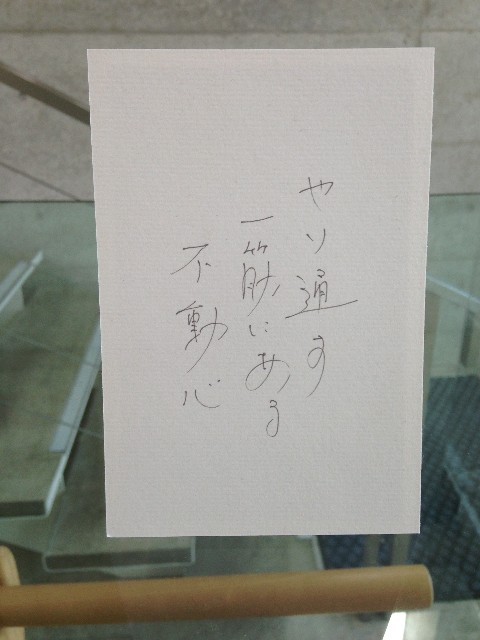 やり通す
一筋にある
不動心